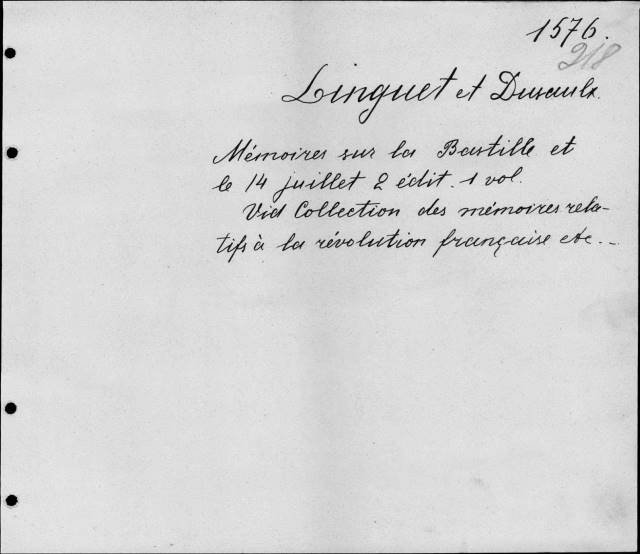 1576.
218
Linguet et Dusaulx.
Mémoires sur la Bastille et
le 14 juillet 2 édit. 1 vol.
Vid Collection des mémoires rela-
tifs à la révolution française etc. -